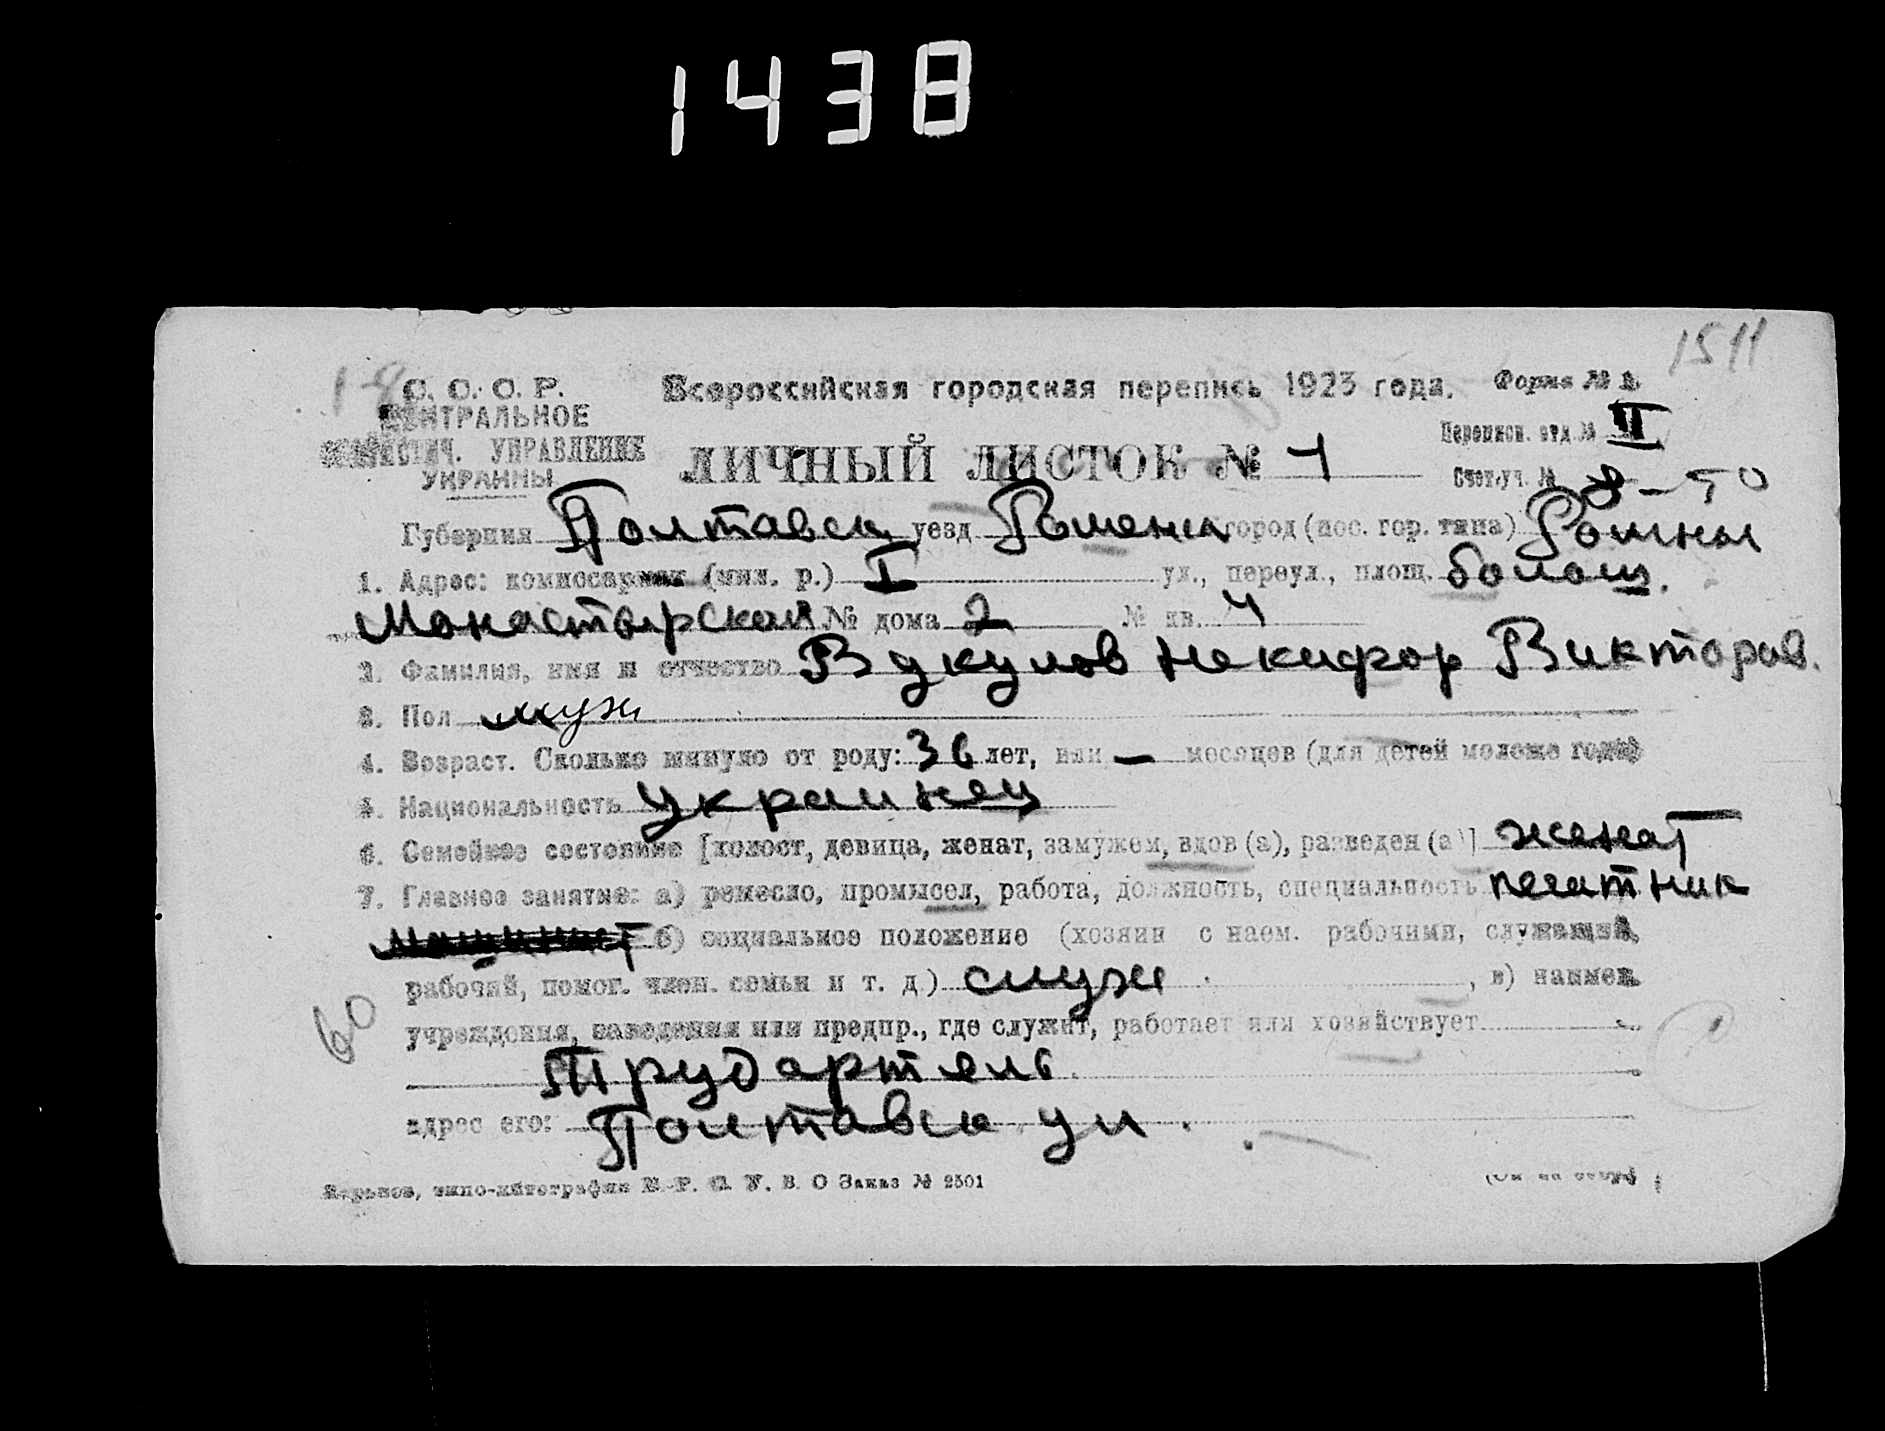 1438
1511
С. С. С. Р. Всероссийская городская перепись 1923 года. Форма № 2.
ЦЕНТРАЛЬНОЕ
СТАТИСТИЧ. УПРАВЛЕНИЕ ЛИЧНЫЙ ЛИСТОК № 1 Переписн. отд. № II
УКРАИНЫ Счет.уч. № 8-50
Губерния Полтавск уезд Роменск город (пос. гор. типа) Ромны
1. Адрес: комиссариат (мил. р.) I ул., переул., площ.
Монастырской № дома 2 № кв. 4
2. Фамилия, имя и отчество Вукулов Некифор Викторов.
3. Пол муж
4. Возраст. Сколько минуло от роду: 36 лет, или — месяцев (для детей моложе года)
5. Национальность украинец
6. Семейное состояние [холост, девица, женат, замужем, вдов (а), разведен (а)] женат
7. Главное занятие: а) ремесло, промысел, работа, должность, специальность печатник
б) социальное положение (хозяин с наем. рабочими, служащий,
рабочий, помог. член. семьи и т. д.) служ , в) наимен.
учреждения, заведения или предпр., где служит, работает или хозяйствует
60
Трудартель
адрес его: Полтавск ул.
Харьков, типо-литография В. Заказ № 2501